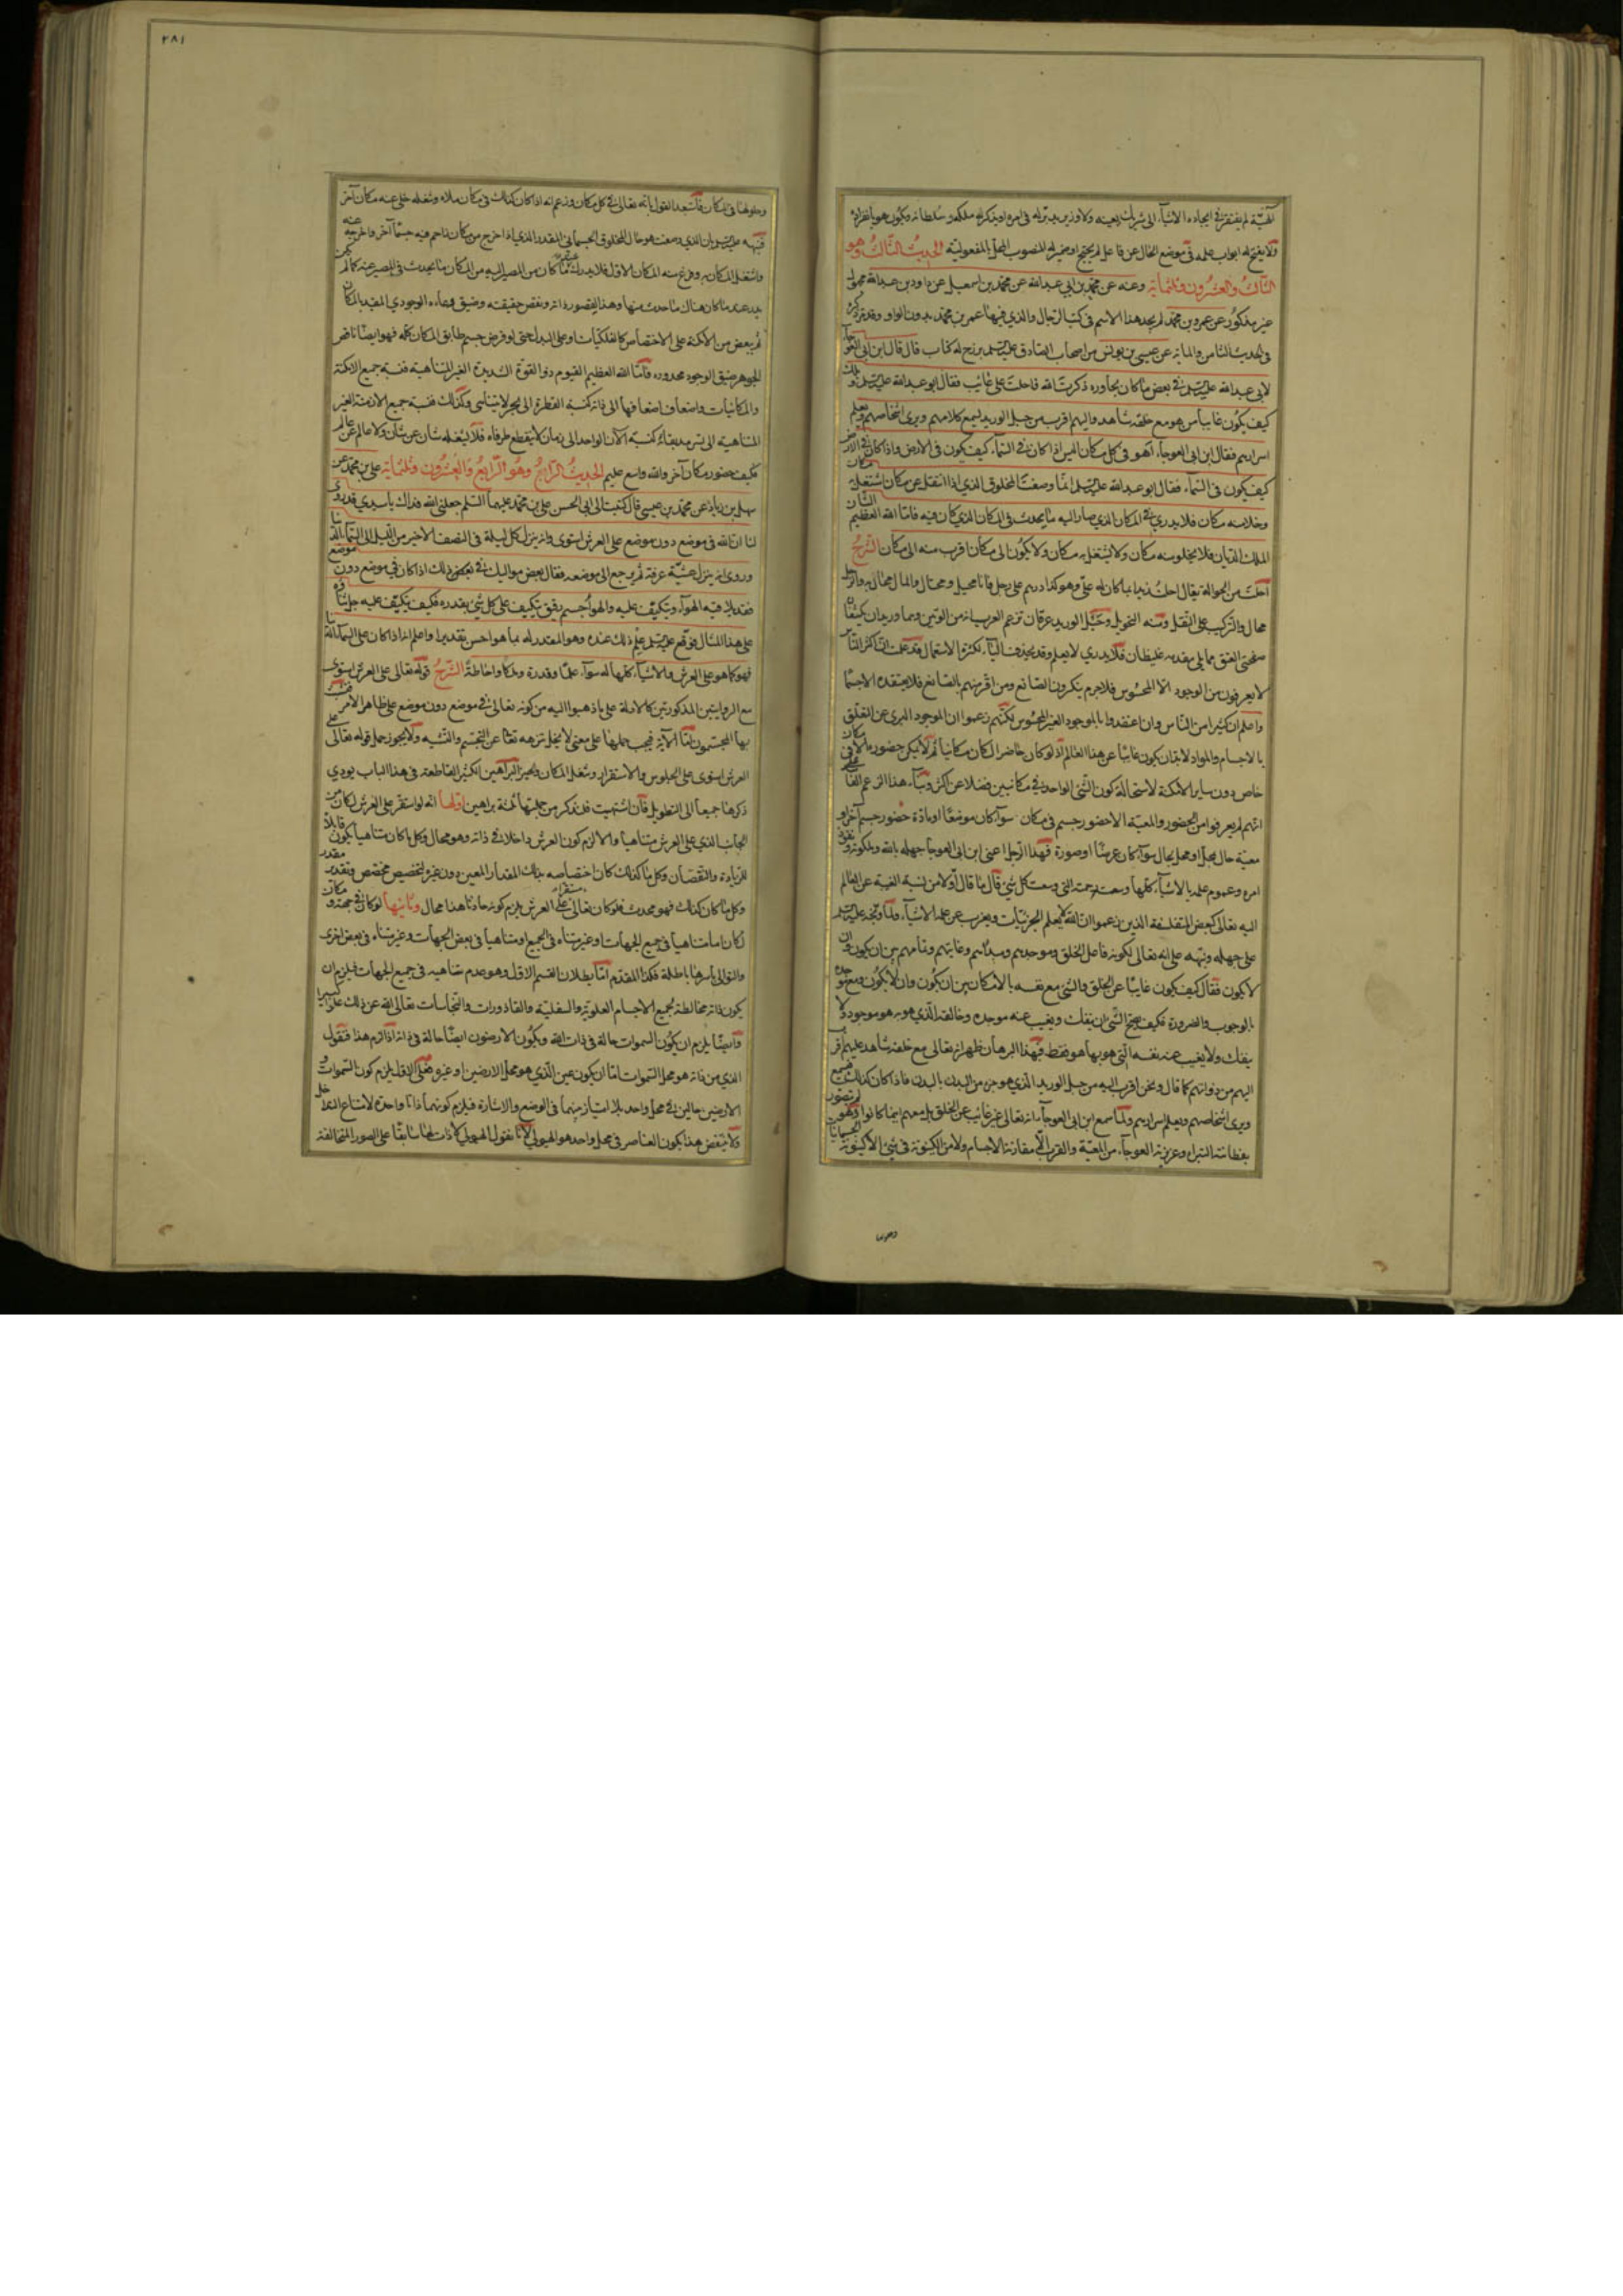 آلهية لم يفتقر في ايجاده الاشياء الى شريك يعينه ولا وزير يدبر له في امره او يذكر له ملكه وسلطانه ويكون هو بانفراده
ولا يفتح له ابواب علمه في موضع الحال عن فاعل لم يحتج او ضميره المنصوب المحل بالمفعولية الحديث الثالث وهو
الثالث والعشرون وثلثمائة وعنه عن محمد بن ابي عبدالله عن محمد بن اسمعيل عن داود بن عبدالله مجهول
غير مذكور عن عمرو بن محمد لم يجد هذا الاسم في كتب الرجال والذي فيها عمر بن محمد بدون الواو وقد مر ذكره
في الحديث الثامن والماية عن عيسى بن يونس من اصحاب الصادق عليه السلم له كتاب قال قال ابن ابي العوجاء
لابي عبدالله عليه السلم في بعض ما كان يحاوره ذكرت الله فاحلت على غايب فقال ابو عبدالله عليه السلم ويلك
كيف يكون غايبا من هو مع خلقه شاهد واليهم اقرب من حبل الوريد يسمع كلامهم ويرى اشخاصهم ويعلم
اسرارهم فقال ابن ابي العوجاء أهو في كل مكان اليس اذا كان في السماء كيف يكون في الارض واذا كان في الارض
كيف يكون في السماء فقال ابو عبدالله عليه السلم انما وصفت المخلوق الذي اذا انتقل عن مكان اشتغل به مكان
وخلا منه مكان فلا يدري في المكان الذي صار اليه ما يحدث في المكان الذي كان فيه فاما الله العظيم الشان
الملك الديان فلا يخلو منه مكان ولا يشتغل به مكان ولا يكون الى مكان اقرب منه الى مكان الشرح
احلت من الحوالة يقال احلت زيدا بما كان له علي وهو كذا درهم على رجل فانا محيل وهو محال والمال محال به والرجل
محال عليه والتركيب على النقل ومنه التحويل وحبل الوريد عرقان تزعم العرب انه من الوتين وهما وريدان يكتنفان
صفحتي العنق مما يلي مقدمه غليظان فلا يدري لا يعلم وقد يحذف الياء لكثرة الاستعمال قد علمت ان اكثر الناس
لا يعرفون من الوجود الا المحسوس فلا جرم ينكرون الصانع ومن اقر منهم بالصانع فلا يعتقده الا جسما
واعلم ان كثيرا من الناس وان اعتقدوا بالموجود الغير المحسوس لكنهم زعموا ان الموجود البري عن التعلق
بالاجسام والمواد لا بد ان يكون غايبا عن هذا العالم اذ لو كان حاضرا لكان مكانيا ثم لا يمكن حضوره الا في مكان
خاص دون ساير الامكنة لاستحالة كون الشي الواحد في مكانين فضلا عن اكثر ومبنى هذا الزعم الفاسد على
انهم لم يعرفوا من الحضور والمعية الا حضور جسم في مكان سواء كان موضعا او مادة حضور جسم آخر او
معية حال بمحل او محل بحال سواء كان عرضا او صورة فهذا الرجل اعني ابن ابي العوجاء جهله بالله وملكوته ونفوذ
امره وعموم علمه بالاشياء كلها وسعة رحمته التي وسعت كل شي قال ما قال اولا من نسبة الغيبة عن العالم
اليه تعالى كبعض المتفلسفة الذين زعموا ان الله لا يعلم الجزئيات ويعزب عن علمه الاشياء ولما وبخه عليه السلم
على جهله ونبهه على انه تعالى لكونه فاعل الخلق وموجدهم ومبدأهم وغايتهم وتمامهم بين ان يكون وان
لا يكون فقال كيف يكون غايبا عن الخلق والشي مع نفسه بالامكان بين ان يكون وان لا يكون ومع موجده
بالوجوب والضرورة فكيف يصح الشي ان ينفك ويغيب عنه موجده وخالقه الذي هو به هو موجود ولا
ينفك ولا يغيب عنه نفسه التي هو بها هو فقط فبهذا البرهان ظهر انه تعالى مع خلقه شاهد عليهم اقرب
اليهم من ذواتهم كما قال ونحن اقرب اليه من حبل الوريد الذي هو جزء من البدن بالبدن فاذا كان كذلك فيسمع
ويرى اشخاصهم ويعلم اسرارهم ولما سمع ابن ابي العوجاء انه تعالى غير غائب عن الخلق بل معهم اينما كانوا وهو لم يتصور
بفطانته البتراء وغريزته العوجاء من المعية والقرب الا مقارنة الاجسام ولا من الكينونة في شي الا كينونة الجسمانيات
وحلولها
٢٨١
وحلولها في المكان فاستبعد القول بانه تعالى في كل مكان وزعم انه اذا كان كذلك في مكان ملأه وشغله خلى عنه مكان آخر
فنبهه عليه السلم بان الذي وصفت هو حال المخلوق الجسماني المقدر الذي اذا خرج من مكان زاحم فيه جسما آخر واخرجه عنه
واشتغل المكان به وفرغ منه المكان الاول فلا يدرك عند ما كان من المصير اليه من المكان ما يحدث في المصير عنه كما لم يكن
يدري عند ما كان هناك ما حدث منها وهذا لقصور ذاته ونقص حقيقته وضيق وعاءه الوجودي المقيد بالمكان
ثم بعض من الامكنة على الاختصاص كالفلكيات او على البدل حتى لو فرض جسم طابق المكان كله فهو ايضا ناقص
الجوهر ضيق الوجود محدوده فاما الله العظيم القيوم ذو القوة الشديدة الغير المتناهية فنسبة جميع الامكنة
والمكانيات واضعاف اضعافها الى ذاته كنسبة القطرة الى بحر لا يتناهى وكذلك نسبة جميع الازمنة الغير
المتناهية الى سرمد بقائه كنسبة الآن الواحد الى زمان لا ينقطع طرفاه فلا يشغله شان عن شان ولا عالم عن عالم
فكيف حضور مكان آخر والله واسع عليم الحديث الرابع وهو الرابع والعشرون وثلثمائة علي بن محمد عن
سهل بن زياد عن محمد بن عيسى قال كتبت الى ابي الحسن علي بن محمد عليهما السلم جعلني الله فداك يا سيدي قد روي
لنا ان الله في موضع دون موضع على العرش استوى وانه ينزل كل ليلة في النصف الاخير من الليل الى السماء الدنيا
وروي انه ينزل عشية عرفة ثم يرجع الى موضعه فقال بعض مواليك في بعض ذلك اذا كان في موضع دون موضع
فقد يلاقيه الهواء ويتكيف عليه والهواء جسم رقيق يتكيف على كل شي بقدره فكيف يتكيف عليه جل ثناؤه
على هذا المثال فوقع عليه السلم علم ذلك عنده وهو المقدر له بما هو احسن تقديرا واعلم انه اذا كان على السماء الدنيا
فهو كما هو على العرش والاشياء كلها له سواء علما وقدرة وملكا واحاطة الشرح قوله تعالى على العرش استوى
مع الروايتين المذكورتين كالادلة على ما ذهبوا اليه من كونه تعالى في موضع دون موضع على ظاهر الامر
بها المجسمون اما الآية فيجب حملها على معنى لا يخل تنزهه تعالى عن التجسم والتشبه ولا يجوز حمل قوله تعالى على
العرش استوى على الجلوس والاستقرار وشغل المكان والحيز البراهين الكثيرة القاطعة في هذا الباب يودي
ذكرها جميعا الى التطويل فان اشتهيت فلنذكر من جملتها ثمنة براهين اولها انه لو استقر على العرش لكان من
الجانب الذي على العرش متناهيا والا لزم كون العرش داخلا في ذاته وهو محال وكل ما كان متناهيا يكون قابلا
للزيادة والنقصان وكل ما كذلك كان اختصاصه بذلك المقدار المعين دون غيره لتخصيص مخصص وتقدير مقدر
وكل ما كان كذلك فهو محدث فلو كان تعالى مستقرا على العرش يلزم كونه حادثا هذا محال وثانيها لو كان في جهة ومكان
لكان اما متناهيا في جميع الجهات او غير متناه في الجميع او متناهيا في بعض الجهات وغير متناه في بعض اخرى
والتوالي باسرها باطلة فكذا المقدم اما بطلان القسم الاول وهو عدم تناهيه في جميع الجهات فيلزم ان
يكون ذاته مخالطة بجميع الاجسام العلوية والسفلية والقاذورات والنجاسات تعالى الله عن ذلك علوا كبيرا
وايضا يلزم ان يكون السموات حالة في ذات الله ويكون الارضون ايضا حالة في ذاته اذا لزم هذا فنقول
الذي من ذاته هو محل السموات اما ان يكون عين الذي هو محل الارضين او غيره فعلى الاول يلزم كون السموات و
الارضين حالين في محل واحد بلا امتياز منهما في الوضع والاشارة فيلزم كونهما ذاتا واحدة لامتناع التداخل
ولا ينقض هذا بكون العناصر في محل واحد هو الهيولى لانا نقول الهيولى لا ذات لها سابقا على الصور المتخالفة